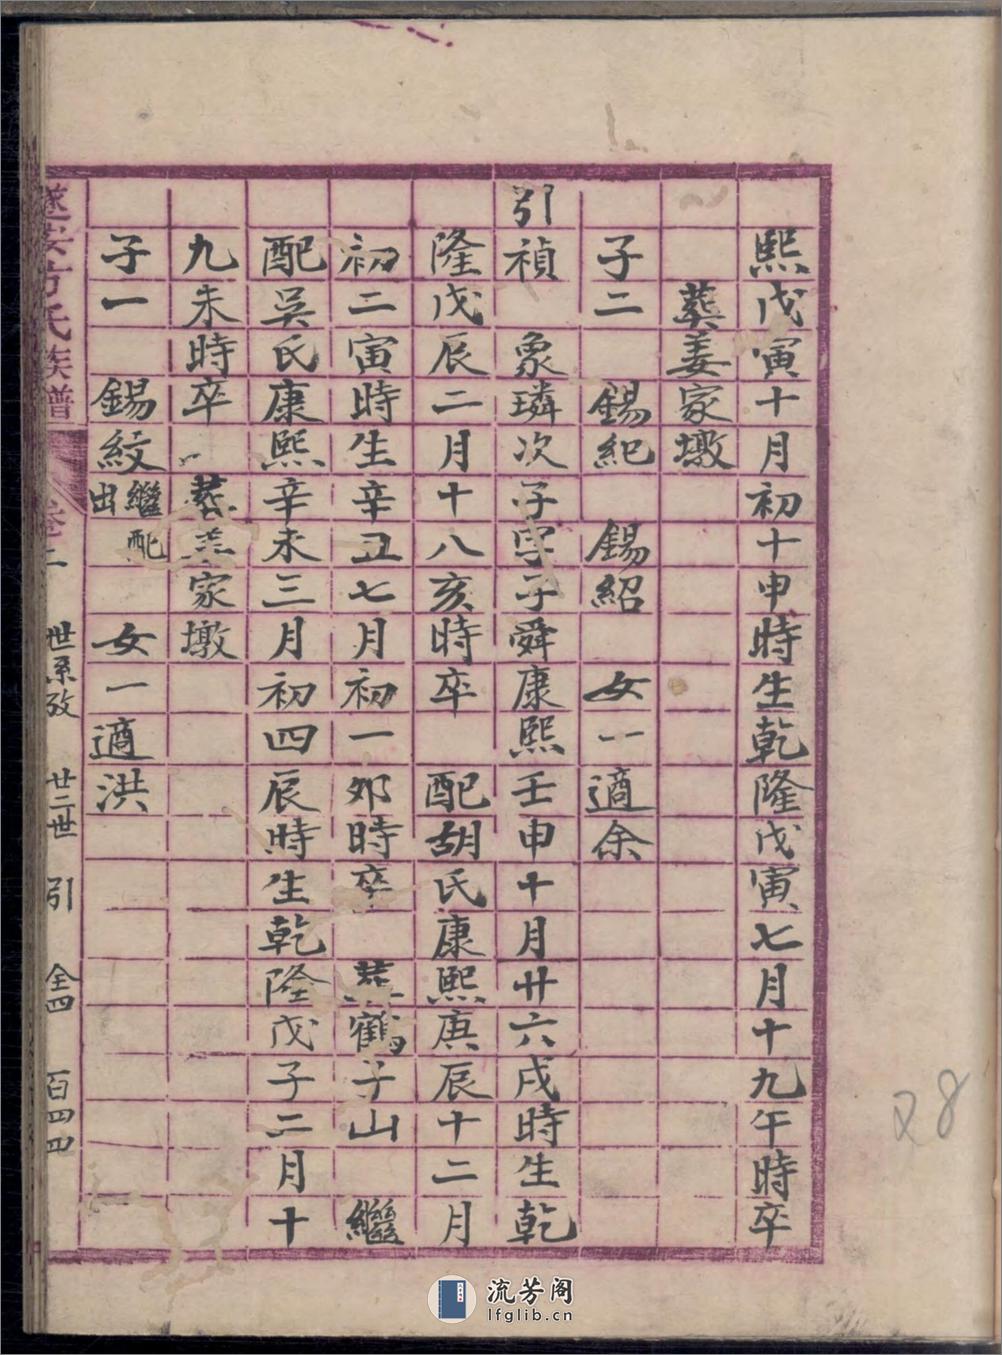 熙戊寅十月初十申時生乾隆戊寅七月十九午時卒
葬姜家墩
子二 錫紀 錫紹 女一適余
引禎 象璘次子字子舜康熙壬申十月廿六戌時生乾
隆戊辰二月十八亥時卒 配胡氏康熙庚辰十二月
初二寅時生辛丑七月初一卯時卒 葬鶴子山 繼
配吳氏康熙辛未三月初四辰時生乾隆戊子二月十
九未時卒 葬姜家墩
子一 錫紋 繼配出 女一適洪
遂安方氏族譜 卷二 世系攷 廿二世 引 仝四 百四四
28
流芳阁
lfglib.cn